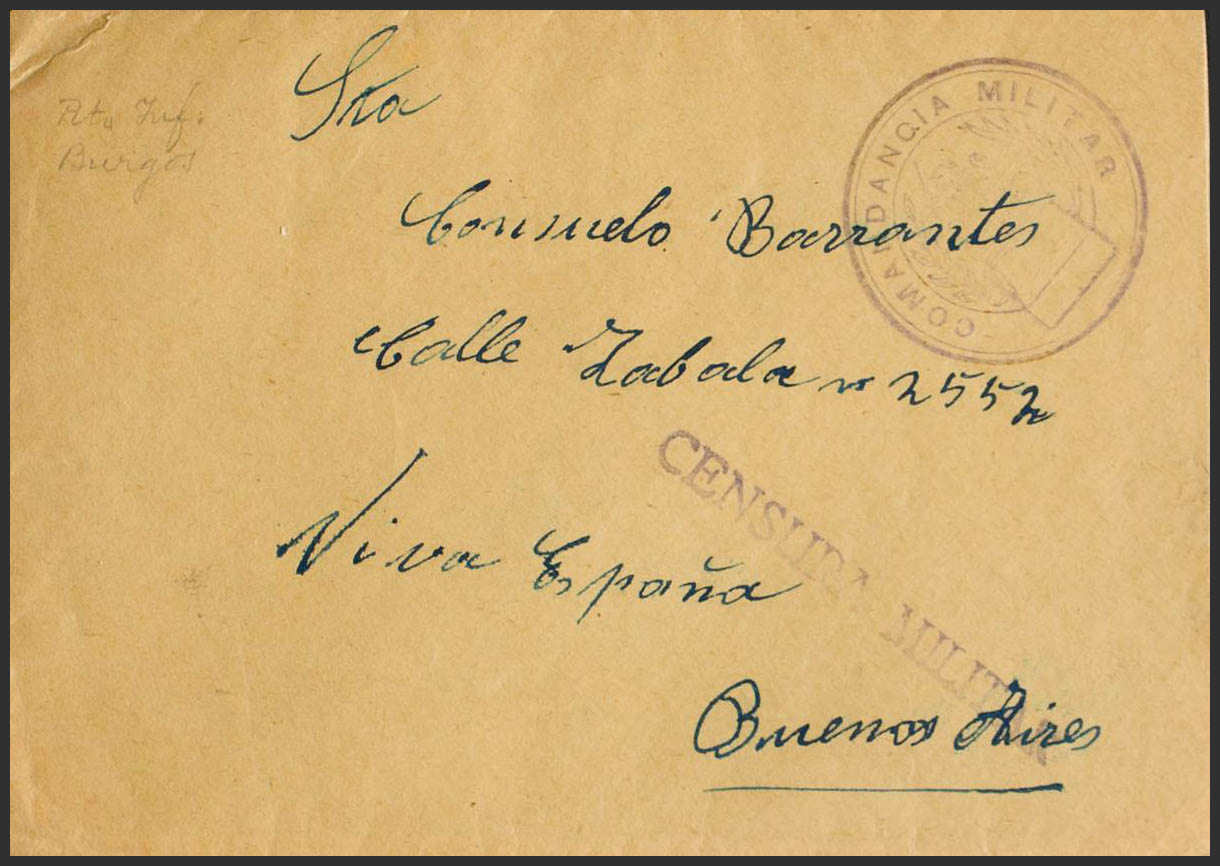 Rto Inf:
Burgos
Sta
COMANDANCIA MILITAR
Consuelo Barrantes
Calle Zabala nº 2552
CENSURA MILITAR
Viva España
Buenos Aires